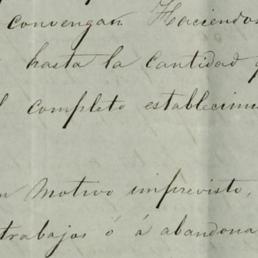 convengan Haciendo
hasta la cantidad
completo establecimi
motivo imprevisto,
trabajos ó á abandona